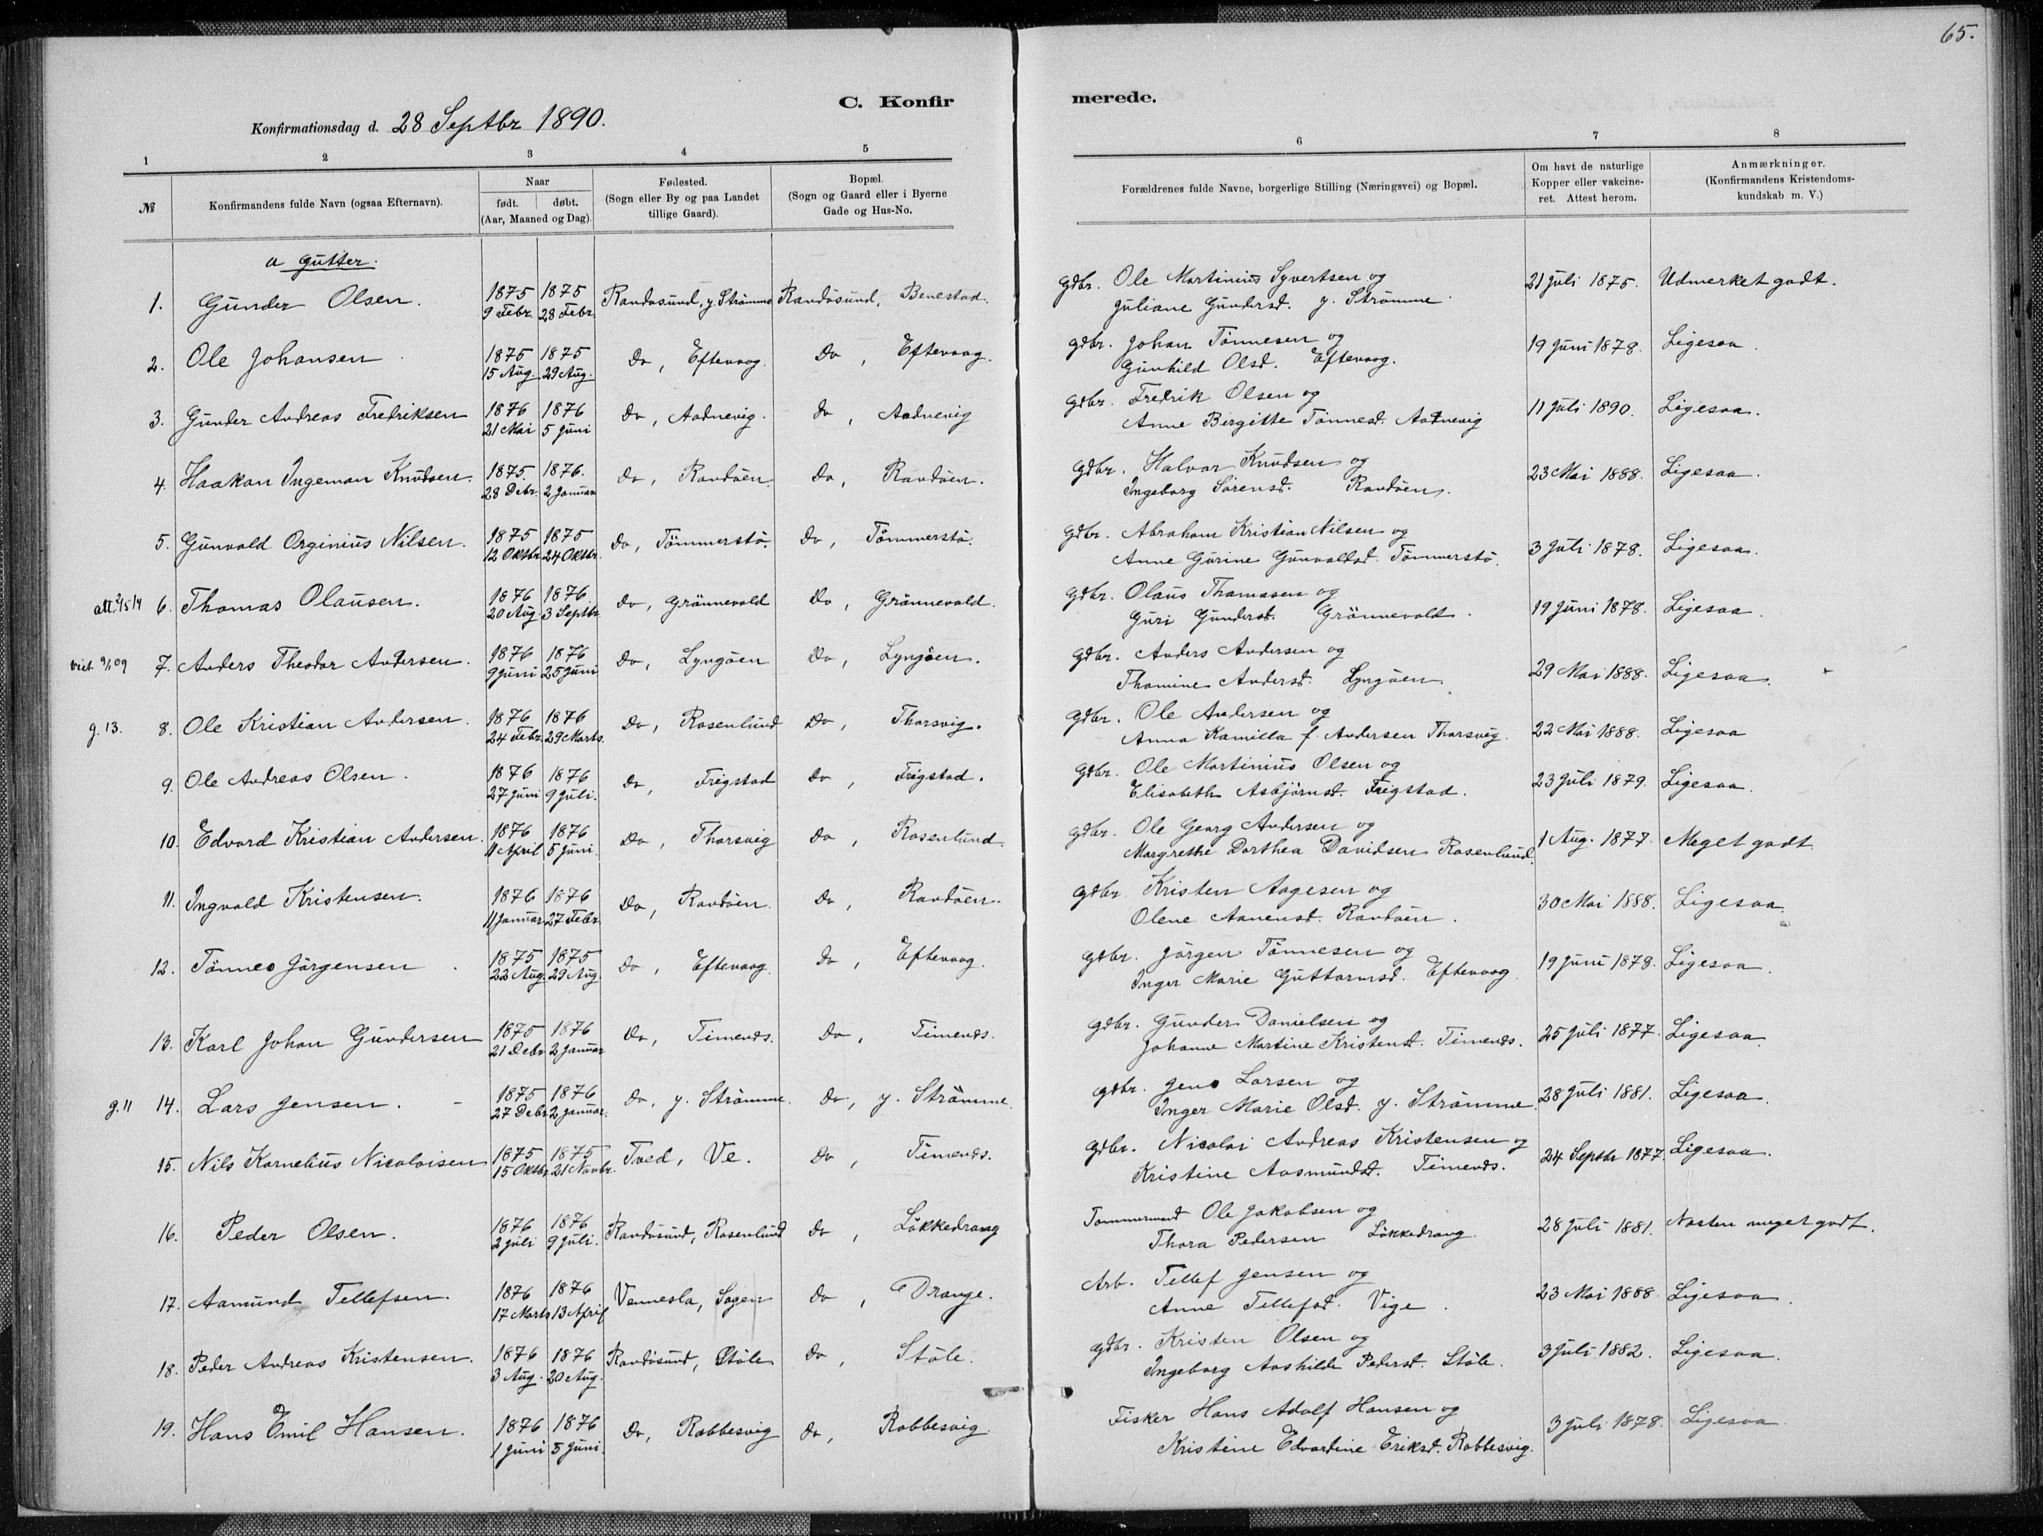 65.
C. Konfir merede.
Konfirmationsdag d. 28 Septbr 1890.
1 2 3 4 5 6 7 8
№ Konfirmandens fulde Navn (ogsaa Efternavn). Naar født. døbt. (Aar, Maaned og Dag). Fødested. (Sogn eller By og paa Landet tillige Gaard). Bopæl. (Sogn og Gaard eller i Byerne Gade og Hus-No. Forældrenes fulde Navne, borgerlige Stilling (Næringsvei) og Bopæl. Om havt de naturlige Kopper eller vakcineret. Attest herom. Anmærkninger. (Konfirmandens Kristendomskundskab m. V.)
a Gutter.
1. Gunder Olsen. 1875 9 Febr. 1875 28 Febr. Randøsund, y. Strømme Randøsund, Benestad. Gdbr. Ole Martinius Syvertsen og Juliane Gundersd. y. Strømme 21 Juli 1875. Udmerket godt.
2. Ole Johansen 1875 15 Aug. 1875 29 Aug. Do, Eftevaag. Do, Eftevaag. Gdbr. Johan Tönnesen og Gunhild Olsd. Eftevaag. 19 Juni 1878. Ligesaa
3. Gunder Andreas Fredriksen 1876 21 Mai 1876 5 Juni Do, Aadnevig. Do, Aadnevig Gdbr. Fredrik Olsen og Anne Birgitte Tönnesd. Aadnevig 11 Juli 1890. Ligesaa.
4. Haakon Ingeman Knudsen. 1875. 28 Debr. 1876. 2 Januar Do, Randøen. Do, Randøen. Gdbr. Halvor Knudsen og Ingeborg Sørensd. Randøen. 23 Mai 1888. Ligesaa.
5. Gunvald Orginius Nilsen. 1875 12 Oktbr. 1875 24 Oktbr. Do, Tömmerstø. Do, Tömmerstø. Gdbr. Abraham Kristian Nilsen og Anne Gurine Gunvaldsd. Tömmerstø. 3 Juli 1878. Ligesaa.
6. Thomas Olausen. 1876 20 Aug. 1876. 3 Septbr. Do, Grönnevold Do, Grönnevold. Gdbr. Olaus Thomasen og Guri Gundersd. Grönnevold. 19 Juni 1878. Ligesaa.
7. Anders Theodor Andersen. 1876 9 Juni 1876 25 Juni Do, Lyngøen Do, Lyngøen. Gdbr. Anders Andersen og Thomine Andersd. Lyngøen 29 Mai 1888. Ligesaa.
g. 13. 8. Ole Kristian Andersen. 1876 24 Febr. 1876 29 Marts. Do, Rosenlund Do, Thorsvig. Gdbr. Ole Andersen og Anna Kamilla f. Andersen Thorsvig. 22 Mai 1888. Ligesaa
9. Ole Andreas Olsen. 1876 27 Juni 1876 9 Juli. Do, Frigstad Do, Frigstad. Gdbr. Ole Martinius Olsen og Elisabeth Asbjørnsd. Frigstad. 23 Juli 1879. Ligesaa.
10. Edvard Kristian Andersen. 1876 4 April 1876 5 Juni. Do, Thorsvig Do, Rosenlund Gdbr. Ole Georg Andersen og Margrethe Dorthea Davidsen Rosenlund. 1 Aug. 1877. Meget godt.
11. Ingvald Kristensen. 1876 11 Januar 1876 27 Febr. Do, Randøen Do, Randøen. Gdbr. Kristen Aagesen og Olene Aanensd. Randøen. 30 Mai 1888. Ligesaa.
12. Tönnes Jörgensen 1875 22 Aug. 1875 29 Aug. Do, Eftevaag. Do, Eftevaag. Gdbr. Jörgen Tönnesen og Inger Marie Guttormsd. Eftevaag. 19 Juni 1878. Ligesaa.
13. Karl Johan Gundersen 1875 21 Debr. 1876 2 Januar Do, Timenes. Do, Timenes. Gdbr. Gunder Danielsen og Johanne Martine Kristensd. Timenes. 25 Juli 1877. Ligesaa.
g. 11 14. Lars Jensen. 1875 27 Debr. 1876 2 Januar. Do, y. Strömme. Do, y. Strömme. Gdbr. Jens Larsen og Inger Marie Olsd. y. Strömme. 28 Juli 1881. Ligesaa.
15. Nils Kornelius Nicolaisen 1875 15 Oktbr. 1875 21 Novbr. Tved, Ve. Do, Timenes. Gdbr. Nicolai Andreas Kristensen og Kristine Aasmundsd. Timenes. 24 Septbr 1877. Ligesaa.
16. Peder Olsen. 1876 2 Juli 1876 9 Juli. Randøsund, Rosenlund Do, Løkkedrang Tømmermand Ole Jakobsen og Thora Pedersen Løkkedrang. 28 Juli 1881. Næsten meget godt.
17. Aamund Tellefsen. 1876 17 Marts 1876 13 April Vennesla, Sagen Do, Drange. Arb. Tellef Jensen og Anne Tellefsd. Vige. 23 Mai 1888. Ligesaa.
18. Peder Andreas Kristensen. 1876 3 Aug. 1876 20 Aug. Randøsund, Støle Do, Støle. Gdbr. Kristen Olsen og Ingeborg Aashilde Pedersd. Støle. 3 Juli 1882. Ligesaa.
19. Hans Emil Hansen. 1876 1 Juni 1876 5 Juni. Do, Rabbesvig Do, Rabbesvig Fisker Hans Adolf Hansen og Kristine Edvardine Eriksd. Rabbesvig. 3 Juli 1878. Ligesaa.